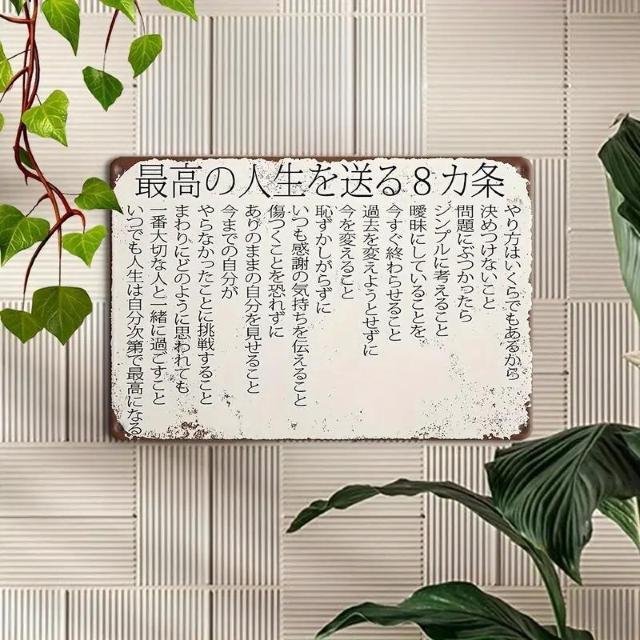 最高の人生を送る８カ条
やり方はいくらでもあるから
決めつけないこと
問題にぶつかったら
シンプルに考えること
曖昧にしていることを
今すぐ終わらせること
過去を変えようとせずに
今を変えること
恥ずかしがらずに
いつも感謝の気持ちを伝えること
傷つくことを恐れずに
ありのままの自分を見せること
今までの自分が
やらなかったことに挑戦すること
まわりにどのように思われても
一番大切な人と一緒に過ごすこと
いつでも人生は自分次第で最高になる